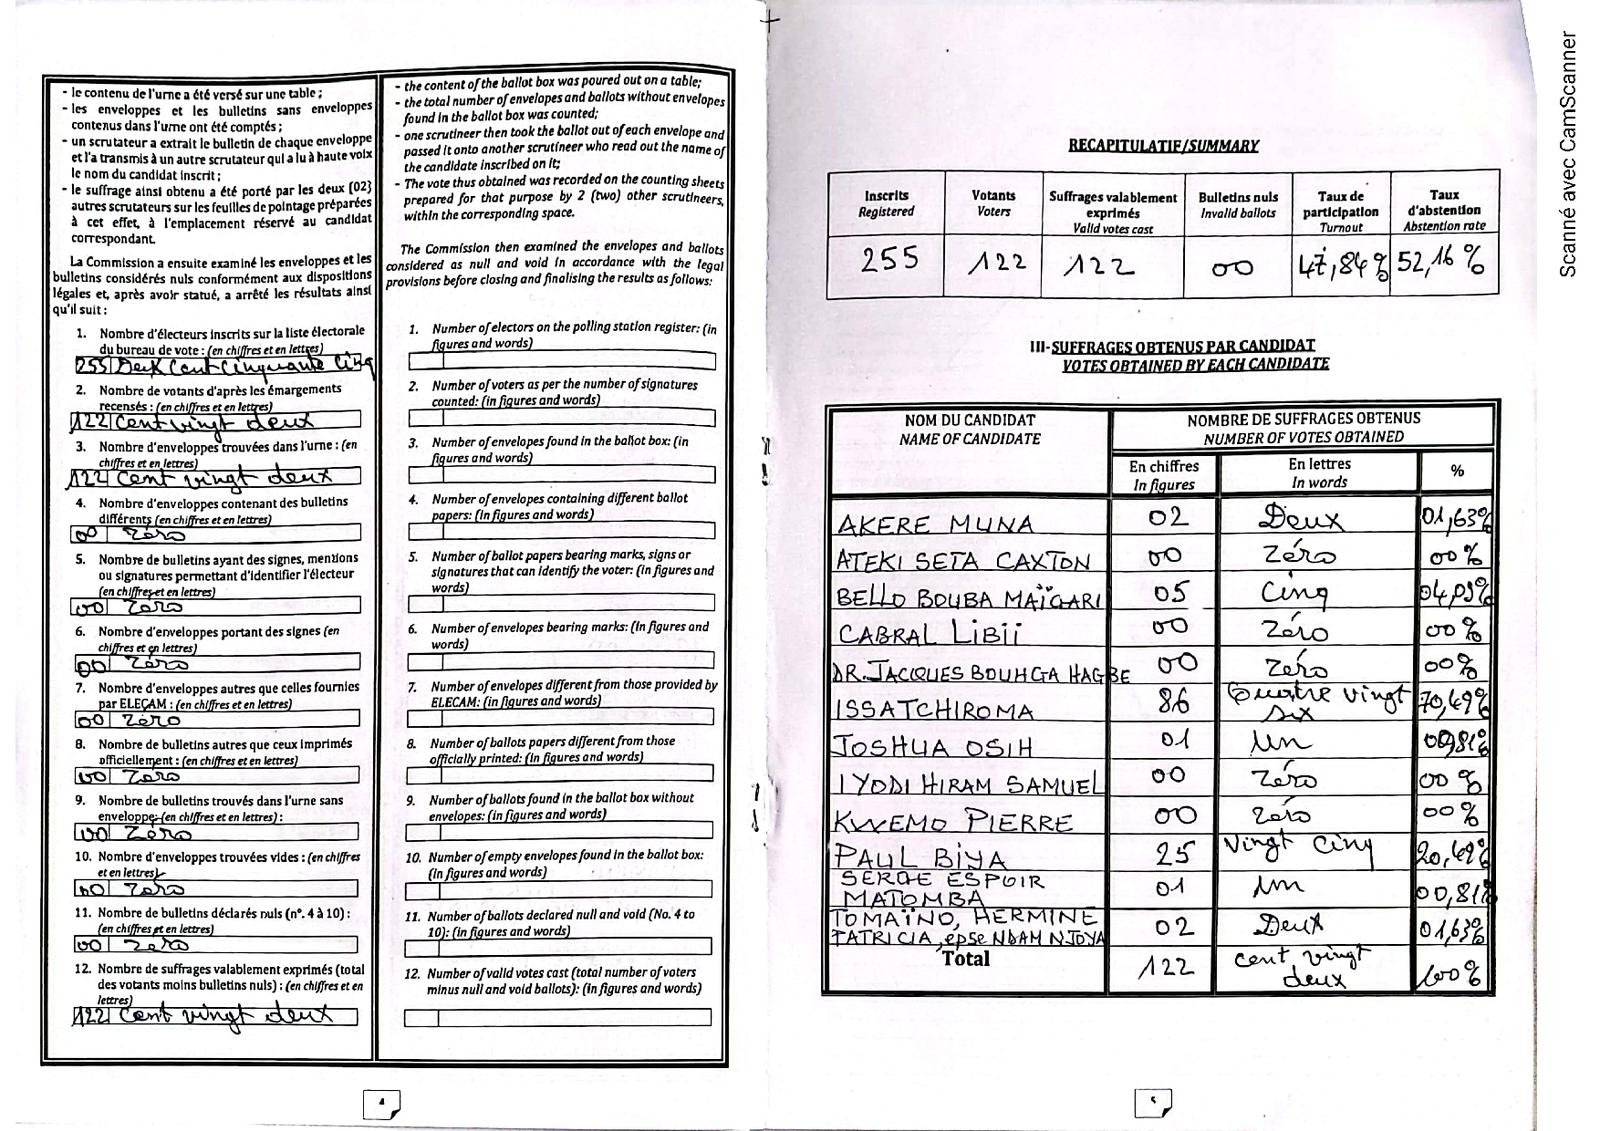 - le contenu de l'urne a été versé sur une table ;
- les enveloppes et les bulletins sans enveloppes
contenus dans l'urne ont été comptés ;
- un scrutateur a extrait le bulletin de chaque enveloppe
et l'a transmis à un autre scrutateur qui a lu à haute voix
le nom du candidat inscrit ;
- le suffrage ainsi obtenu a été porté par les deux (02)
autres scrutateurs sur les feuilles de pointage préparées
à cet effet, à l'emplacement réservé au candidat
correspondant.
La Commission a ensuite examiné les enveloppes et les
bulletins considérés nuls conformément aux dispositions
légales et, après avoir statué, a arrêté les résultats ainsi
qu'il suit :
1. Nombre d'électeurs inscrits sur la liste électorale
du bureau de vote : (en chiffres et en lettres)
255 Deux Cent Cinquante Cinq
2. Nombre de votants d'après les émargements
recensés : (en chiffres et en lettres)
122 Cent vingt deux
3. Nombre d'enveloppes trouvées dans l'urne : (en
chiffres et en lettres)
122 Cent vingt deux
4. Nombre d'enveloppes contenant des bulletins
différents (en chiffres et en lettres)
00 Zéro
5. Nombre de bulletins ayant des signes, mentions
ou signatures permettant d'identifier l'électeur
(en chiffres et en lettres)
00 Zéro
6. Nombre d'enveloppes portant des signes (en
chiffres et en lettres)
00 Zéro
7. Nombre d'enveloppes autres que celles fournies
par ELECAM : (en chiffres et en lettres)
00 Zéro
8. Nombre de bulletins autres que ceux imprimés
officiellement : (en chiffres et en lettres)
00 Zéro
9. Nombre de bulletins trouvés dans l'urne sans
enveloppe : (en chiffres et en lettres) :
00 Zéro
10. Nombre d'enveloppes trouvées vides : (en chiffres
et en lettres)
00 Zéro
11. Nombre de bulletins déclarés nuls (n°. 4 à 10) :
(en chiffres et en lettres)
00 Zéro
12. Nombre de suffrages valablement exprimés (total
des votants moins bulletins nuls) : (en chiffres et en
lettres)
122 Cent vingt deux
- the content of the ballot box was poured out on a table;
- the total number of envelopes and ballots without envelopes
found in the ballot box was counted;
- one scrutineer then took the ballot out of each envelope and
passed it onto another scrutineer who read out the name of
the candidate inscribed on it;
- The vote thus obtained was recorded on the counting sheets
prepared for that purpose by 2 (two) other scrutineers,
within the corresponding space.
The Commission then examined the envelopes and ballots
considered as null and void in accordance with the legal
provisions before closing and finalising the results as follows:
1. Number of electors on the polling station register: (in
figures and words)
2. Number of voters as per the number of signatures
counted: (in figures and words)
3. Number of envelopes found in the ballot box: (in
figures and words)
4. Number of envelopes containing different ballot
papers: (in figures and words)
5. Number of ballot papers bearing marks, signs or
signatures that can identify the voter: (in figures and
words)
6. Number of envelopes bearing marks: (in figures and
words)
7. Number of envelopes different from those provided by
ELECAM: (in figures and words)
8. Number of ballots papers different from those
officially printed: (in figures and words)
9. Number of ballots found in the ballot box without
envelopes: (in figures and words)
10. Number of empty envelopes found in the ballot box:
(in figures and words)
11. Number of ballots declared null and void (No. 4 to
10): (in figures and words)
12. Number of valid votes cast (total number of voters
minus null and void ballots): (in figures and words)
4
RECAPITULATIF/SUMMARY
Inscrits Registered | Votants Voters | Suffrages valablement exprimés Valid votes cast | Bulletins nuls Invalid ballots | Taux de participation Turnout | Taux d'abstention Abstention rate
255 | 122 | 122 | 00 | 47,84% | 52,16 %
III-SUFFRAGES OBTENUS PAR CANDIDAT
VOTES OBTAINED BY EACH CANDIDATE
NOM DU CANDIDAT NOMBRE DE SUFFRAGES OBTENUS
NAME OF CANDIDATE NUMBER OF VOTES OBTAINED
En chiffres En lettres %
In figures In words
AKERE MUNA 02 Deux 01,63%
ATEKI SETA CAXTON 00 Zéro 00 %
BELLO BOUBA MAÏGARI 05 Cinq 04,09%
CABRAL LiBii 00 Zéro 00 %
DR. JACQUES BOUHGA HAGBE 00 Zéro 00%
ISSA TCHIROMA 86 Quatre vingt six 70,49%
JOSHUA OSIH 01 un 00,81%
IYODI HIRAM SAMUEL 00 Zéro 00 %
KWEMO PIERRE 00 Zéro 00 %
PAUL BIYA 25 Vingt cinq 20,49%
SERGE ESPOIR
MATOMBA 01 un 00,81%
TOMAÏNO, HERMINE
PATRICIA, epse NDAM NJOYA 02 Deux 01,63%
Total 122 cent vingt deux 100%
5
Scanné avec CamScanner